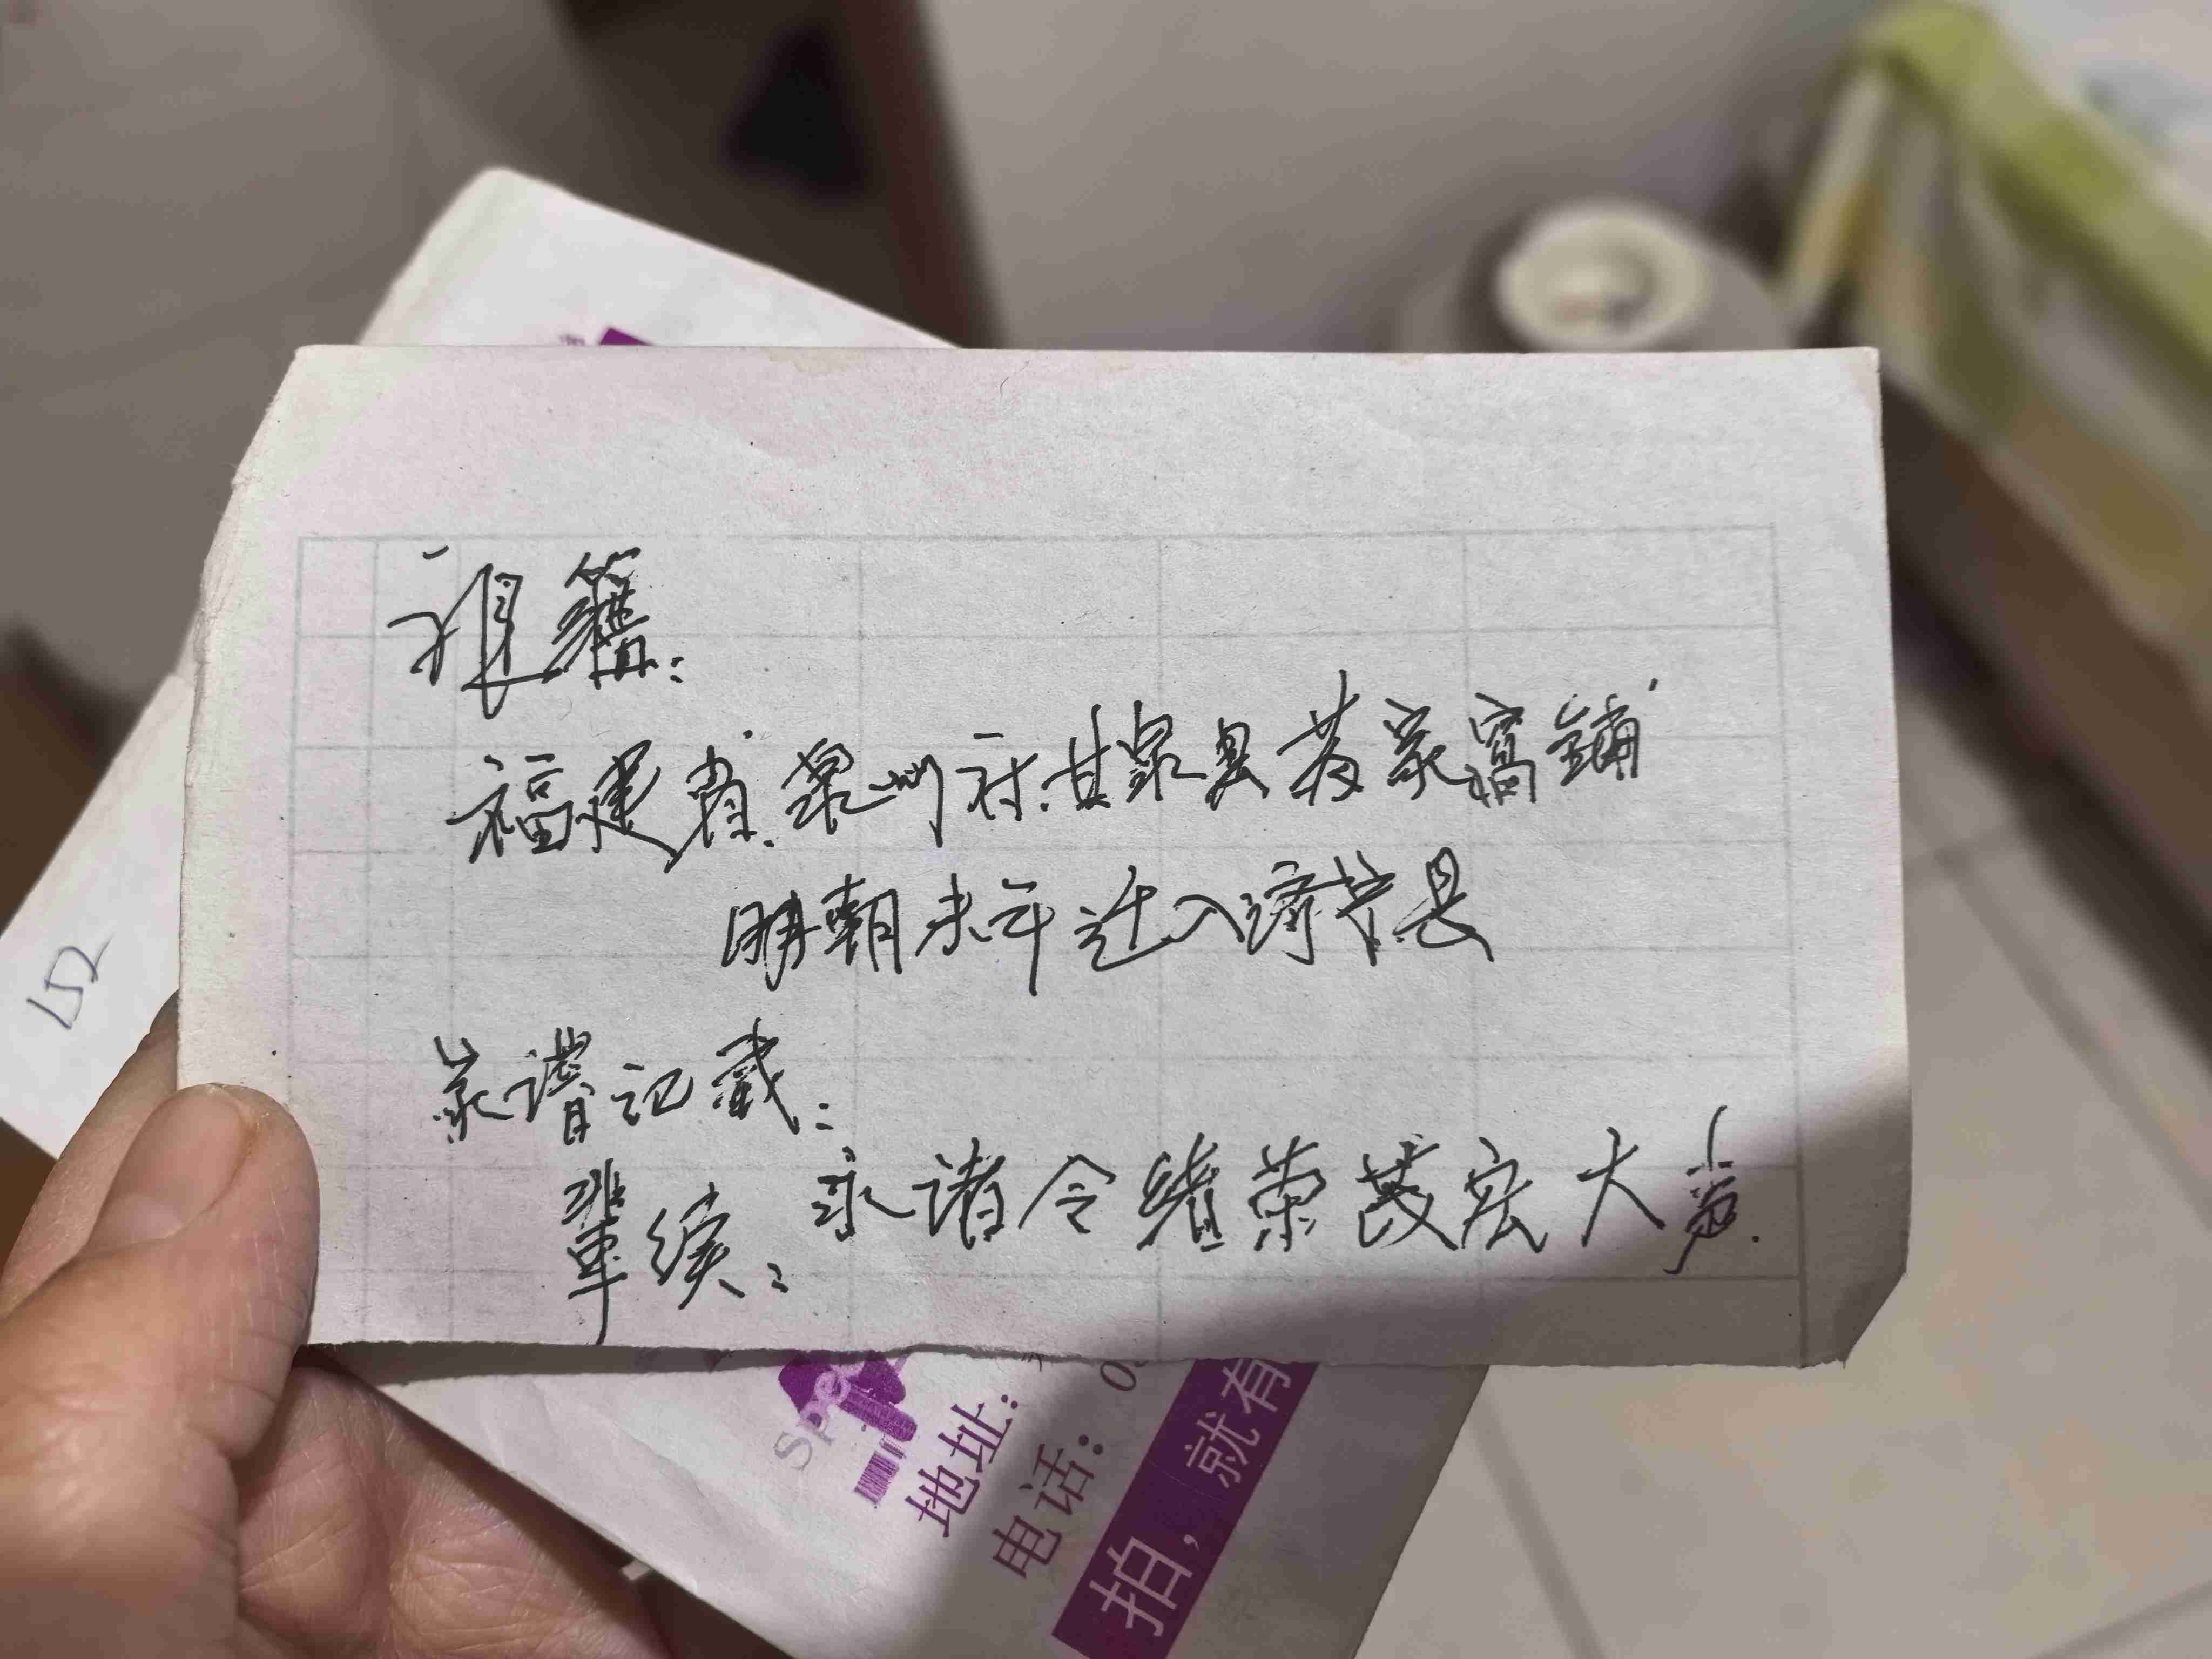 祖籍:
福建省.泉州府.甘泉县蒋家窝铺
明朝末年迁入济宁县
家谱记载:
辈续: 永诸令绪荣茂宏大
152
地址:
电话: 0
拍，就有